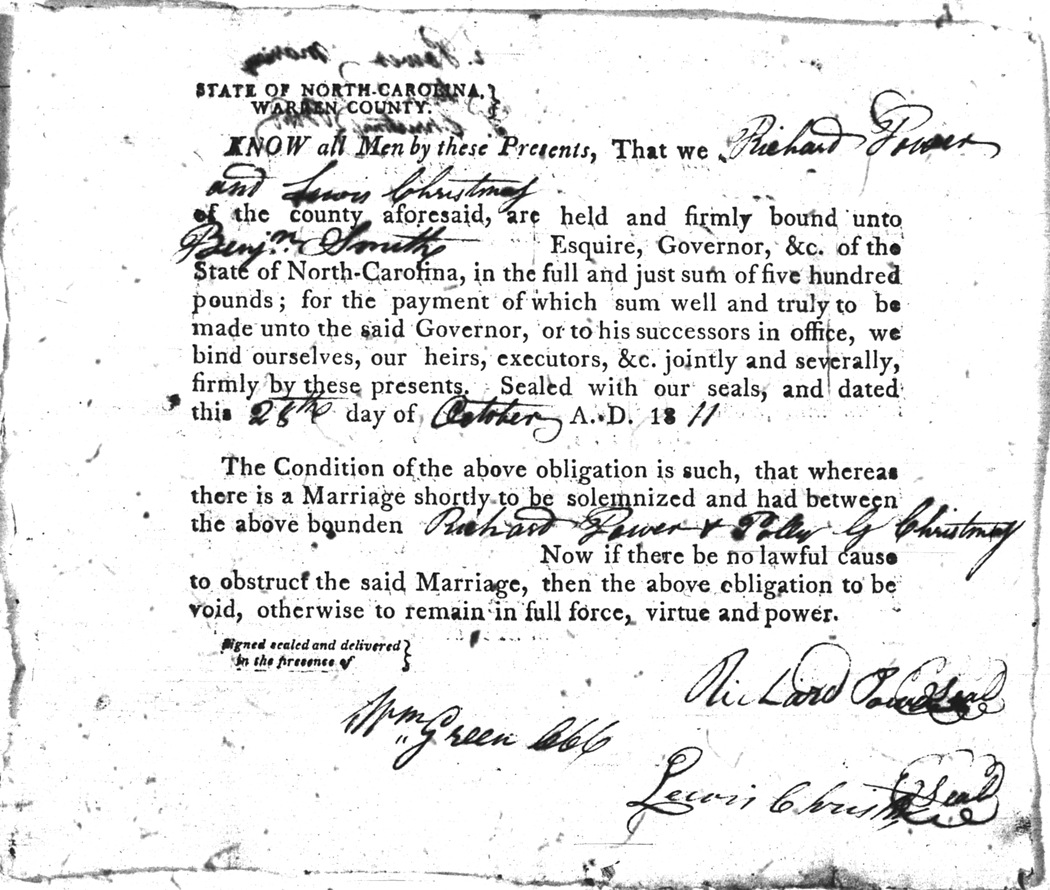 STATE OF NORTH-CAROLINA, }
WARREN COUNTY.
KNOW all Men by these Presents, That we Richard Power
and Lewis Christmas
of the county aforesaid, are held and firmly bound unto
Benjn. Smith Esquire, Governor, &c. of the
State of North-Carolina, in the full and just sum of five hundred
pounds; for the payment of which sum well and truly to be
made unto the said Governor, or to his successors in office, we
bind ourselves, our heirs, executors, &c. jointly and severally,
firmly by these presents. Sealed with our seals, and dated
this 28th day of October A. D. 1811
The Condition of the above obligation is such, that whereas
there is a Marriage shortly to be solemnized and had between
the above bounden Richard Power & Polly G Christmas
Now if there be no lawful cause
to obstruct the said Marriage, then the above obligation to be
void, otherwise to remain in full force, virtue and power.
Signed sealed and delivered }
in the presence of
Richard Power Seal
Wm. Green CCC
Lewis Christmas Seal